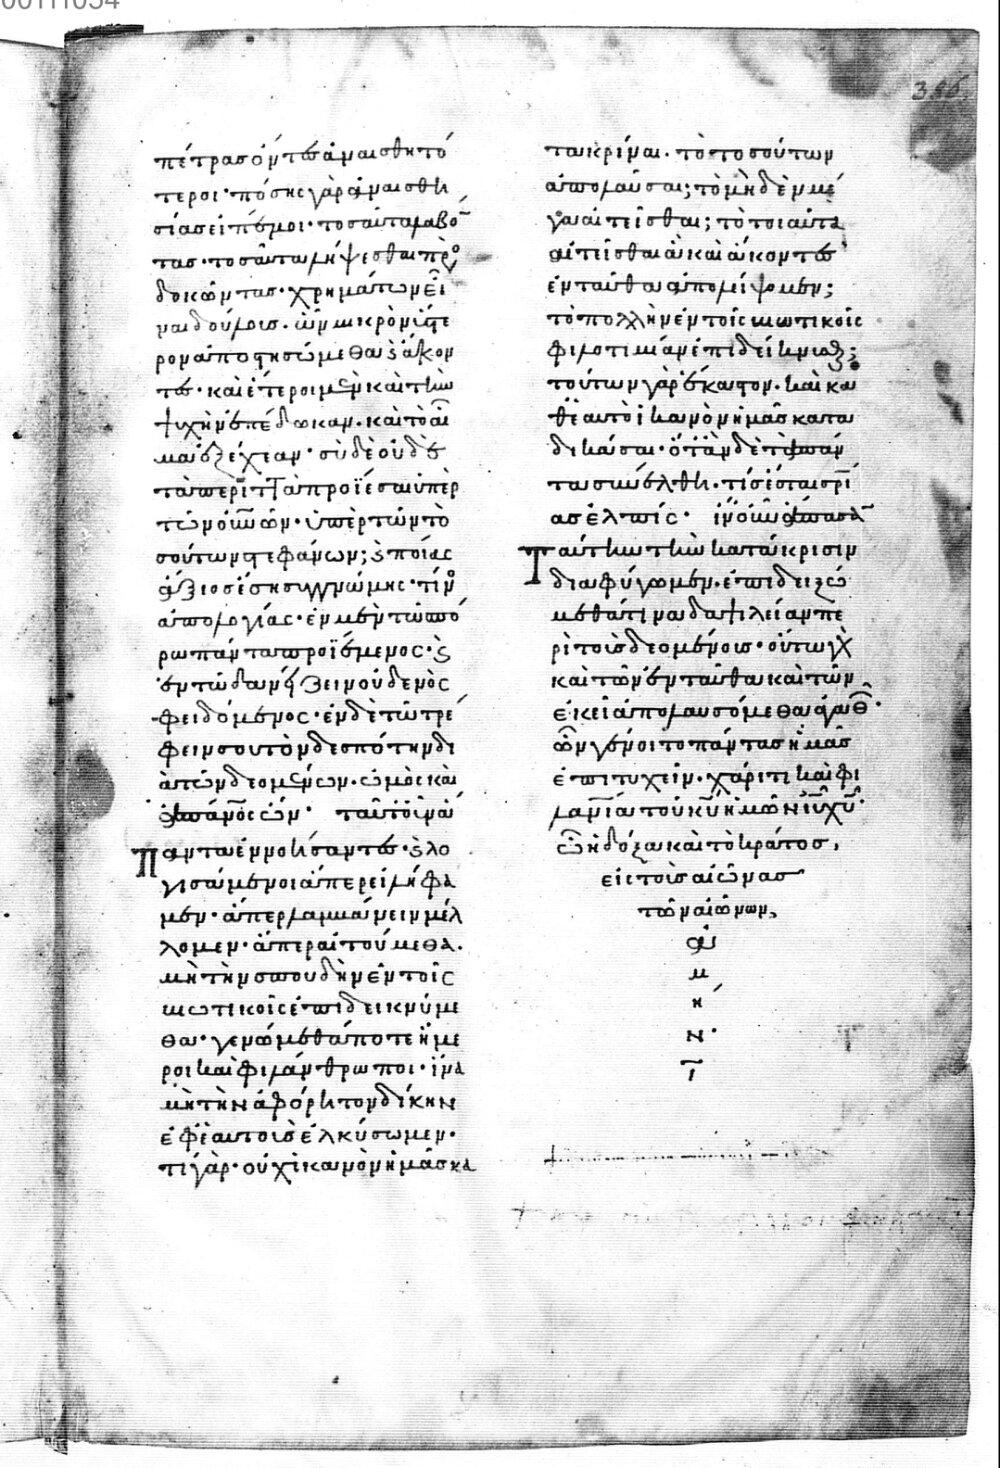 00111034
356
πέτρας ὄντως ἀναισθητό
τεροι· πόσης γὰρ ἀναισθη
σίας εἰπέ μοι· τοσαῦτα λαβό
τας· τοσαῦτα λήψεσθαι προσ
δοκῶντας· χρημάτων εἶ
ναι δούλους. ὧν μικρὸν ὕστε
ρον ἀποστησώμεθα κ(αὶ) ἄκον
τες· καὶ ἕτεροι μὲν καὶ τὴν
ψυχὴν ἐπέδωκαν. καὶ τὸ αἷ
μα ἐξέχεαν· σὺ δὲ οὐδὲ
τὰ περιττὰ προΐεσαι ὑπὲρ
τῶν οὐ(ρα)νῶν· ὑπὲρ τῶν το
σούτων στεφάνων; κ(αὶ) ποίας
ἄξιος ἔσῃ συγγνώμης· τίνος
ἀπολογίας· ἐν μὲν τῶ σπό
ρω πάντα προϊέμενος· κ(αὶ)
ἐν τῶ δανείζειν οὐδενὸς
φειδόμενος· ἐν δὲ τῶ τρέ
φειν σου τὸν δεσπότην δι
ὰ τῶν δεομένων. ὠμὸς καὶ
ἀπάν(θρωπ)ος ὤν· ταῦτ' οὖν ἅ
Παντα ἐννοήσαντες· κ(αὶ) λο
γισάμενοι ἅπερ εἰλήφα
μεν· ἅπερ λαμβάνειν μέλ
λομεν· ἅπερ αἰτούμεθα.
μὴ τὴν σπουδὴν ἐν τοῖς
βιωτικοῖς ἐπιδεικνύμε
θα· γενώμεθά ποτε ἥμε
ροι καὶ φιλάνθρωποι· ἵνα
μὴ τὴν ἀφόρητον δίκην
ἐφ' ἑαυτοῖς ἑλκύσωμεν·
τί γὰρ· οὐχ ἱκανὸν ἡμᾶς κα
τακρίναι. τὸ τοσούτων
ἀπολαῦσαι; τὸ μηδὲν μέ
γα αἰτεῖσθαι; τὸ τοιαῦτα
αἰτεῖσθαι ἃ καὶ ἄκοντες
ἐνταῦθα ἀπολείψομεν;
τὸ πολλὴν ἐν τοῖς βιωτικοῖς
φιλοτιμίαν ἐπιδείκνυσθαι;
τούτων γὰρ ἕκαστον. καὶ κα
θ' ἑαυτὸ ἱκανὸν ἡμᾶς κατα
δικάσαι. ὅταν δὲ πάν
τα συνέλθη. τίς ἔσται σ(ωτη)ρί
ας ἐλπίς·
Ταύτην τὴν κατάκρισιν
διαφύγωμεν. ἐπιδειξώ
μεθά τινα δαψιλείαν πε
ρὶ τοὺς δεομένους· οὕτω γὰρ
καὶ τῶν ἐνταῦθα καὶ τῶν
ἐκεῖ ἀπολαυσόμεθα ἀγαθῶν·
ὧν γένοιτο πάντας ἡμᾶς
ἐπιτυχεῖν· χάριτι καὶ φι
λαν(θρωπ)ία τοῦ κ(υρίο)υ ἡμῶν ἰ(ησο)ῦ χ(ριστο)ῦ·
ὧ ἡ δόξα καὶ τὸ κράτος,
εἰς τοὺς αἰῶνας
τῶν αἰώνων,
ἀ
μ
ή
ν·